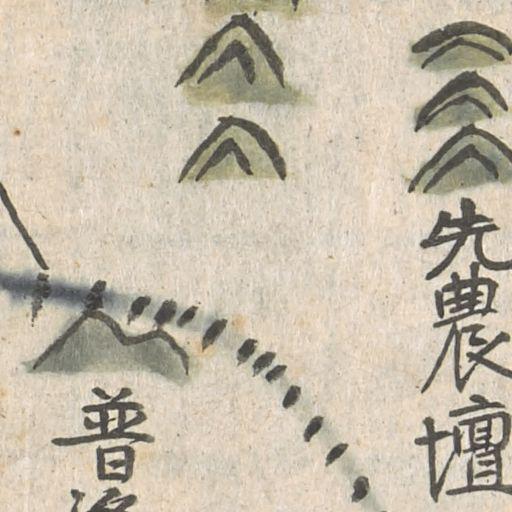 先農壇
普